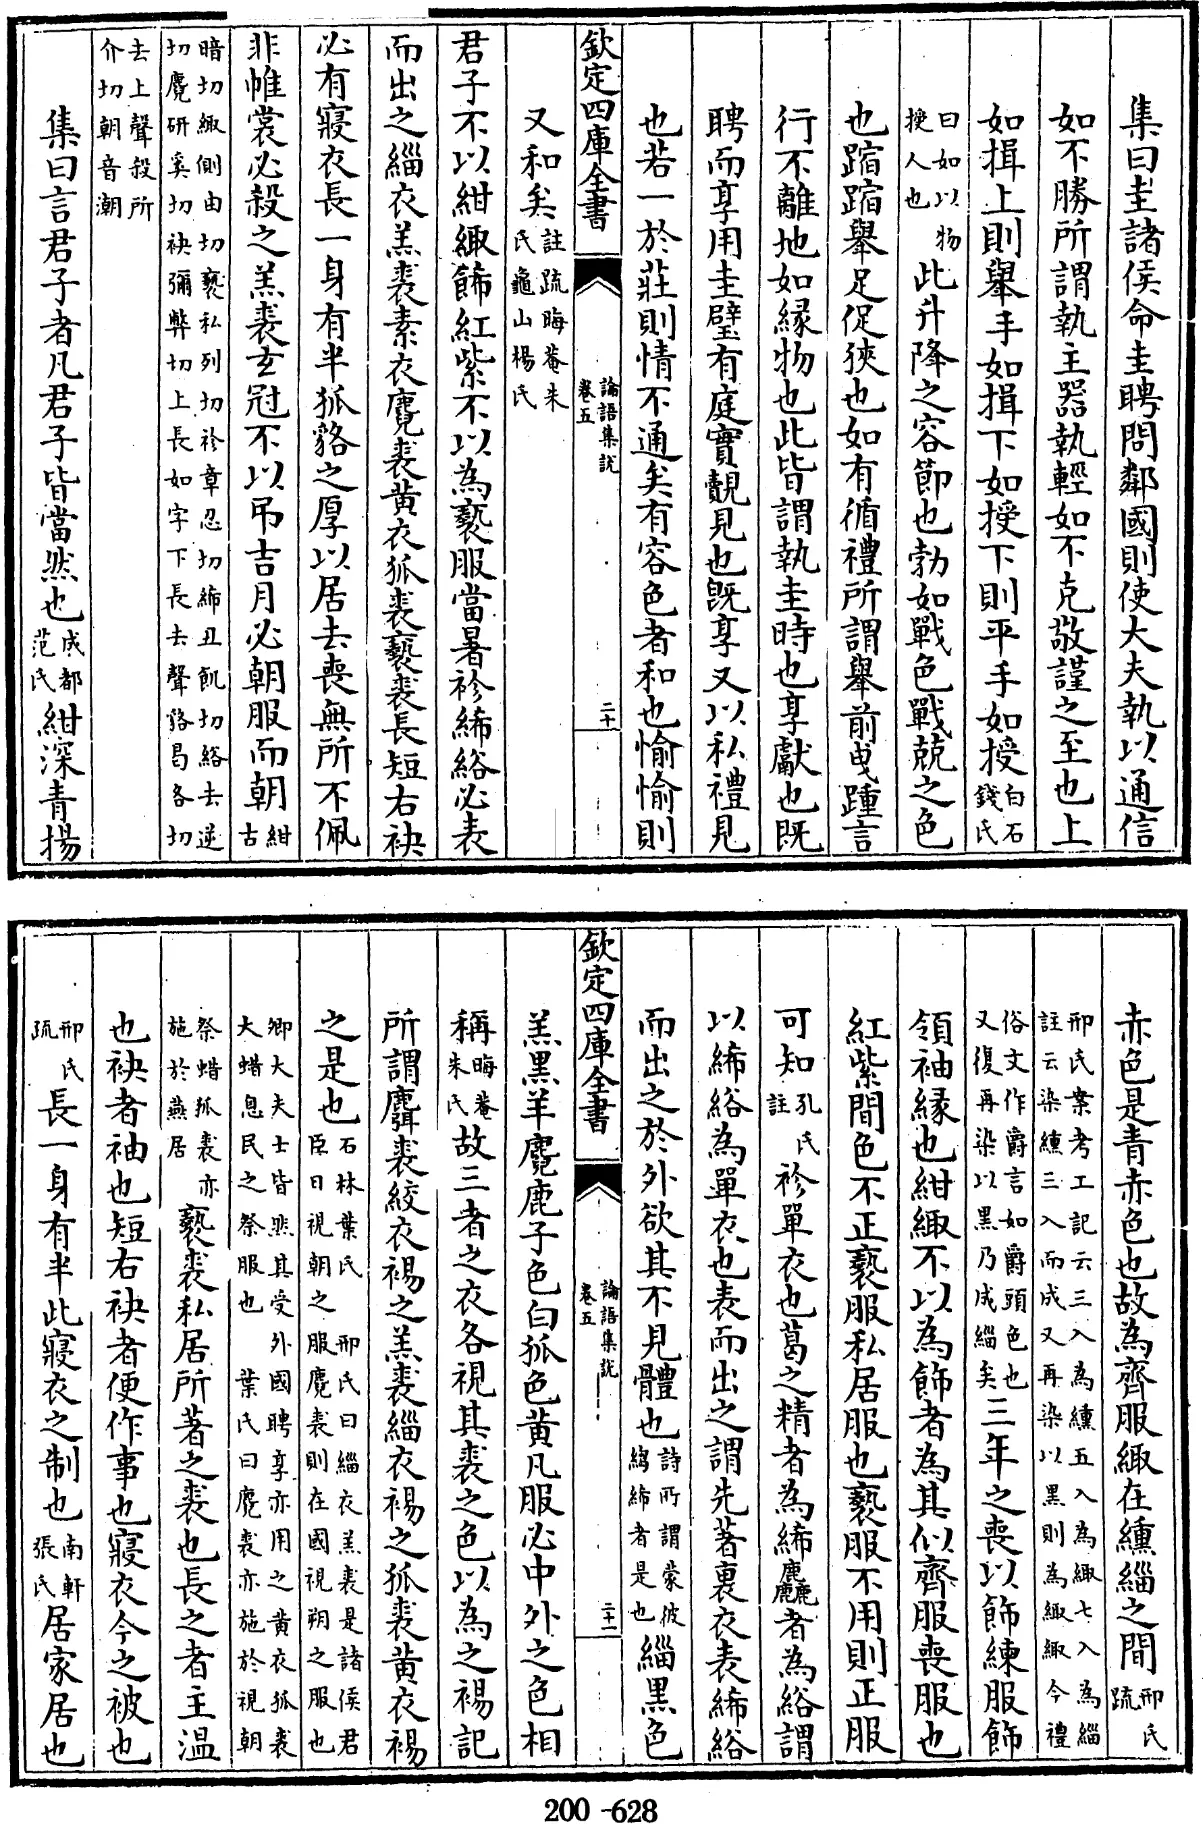 集曰圭諸侯命圭聘問鄰國則使大夫執以通信
如不勝所謂執主器執輕如不克敬謹之至也上
如揖上則舉手如揖下如授下則平手如授白石錢氏
曰如以物授人也此升降之容節也勃如戰色戰兢之色
也蹜蹜舉足促狹也如有循禮所謂舉前曵踵言
行不離地如縁物也此皆謂執圭時也享獻也既
聘而享用圭璧有庭實覿見也旣享又以私禮見
也若一於莊則情不通矣有容色者和也愉愉則
欽定四庫全書
論語集說
卷五
二十
又和矣註疏晦菴朱氏龜山楊氏
君子不以紺緅飾紅紫不以為褻服當暑袗絺綌必表
而出之緇衣羔裘素衣麑裘黃衣狐裘褻裘長短右袂
必有寢衣長一身有半狐貉之厚以居去喪無所不佩
非帷裳必殺之羔裘玄冠不以弔吉月必朝服而朝紺古
暗切緅側由切褻私列切袗章忍切絺丑飢切綌去逆
切麑研奚切袂彌弊切上長如字下長去聲貉曷各切
去上聲殺所
介切朝音潮
集曰言君子者凡君子皆當然也成都范氏紺深青揚
赤色是青赤色也故為齊服緅在纁緇之間邢氏疏
邢氏案考工記云三入為纁五入為緅七入為緇
註云染纁三入而成又再染以黑則為緅緅今禮
俗文作爵言如爵頭色也
又復再染以黑乃成緇矣三年之喪以飾練服飾
領袖縁也紺緅不以為飾者為其似齊服喪服也
紅紫間色不正褻服私居服也褻服不用則正服
可知孔氏註袗單衣也葛之精者為絺麤者為綌謂
以絺綌為單衣也表而出之謂先著裏衣表絺綌
而出之於外欲其不見體也詩所謂蒙彼縐絺者是也緇黑色
欽定四庫全書
論語集說
卷五
二十一
羔黑羊麑鹿子色白狐色黄凡服必中外之色相
稱晦菴朱氏故三者之衣各視其裘之色以為之裼記
所謂麛裘絞衣裼之羔裘緇衣裼之狐裘黄衣裼
之是也石林葉氏邢氏曰緇衣羔裘是諸侯君
臣日視朝之服麑裘則在國視朔之服也
卿大夫士皆然其受外國聘享亦用之黄衣狐裘
大蜡息民之祭服也葉氏曰麑裘亦施於視朝
祭蜡狐裘亦
施於燕居褻裘私居所著之裘也長之者主溫
也袂者袖也短右袂者便作事也寢衣今之被也
邢氏疏長一身有半此寢衣之制也南軒張氏居家居也
200-628